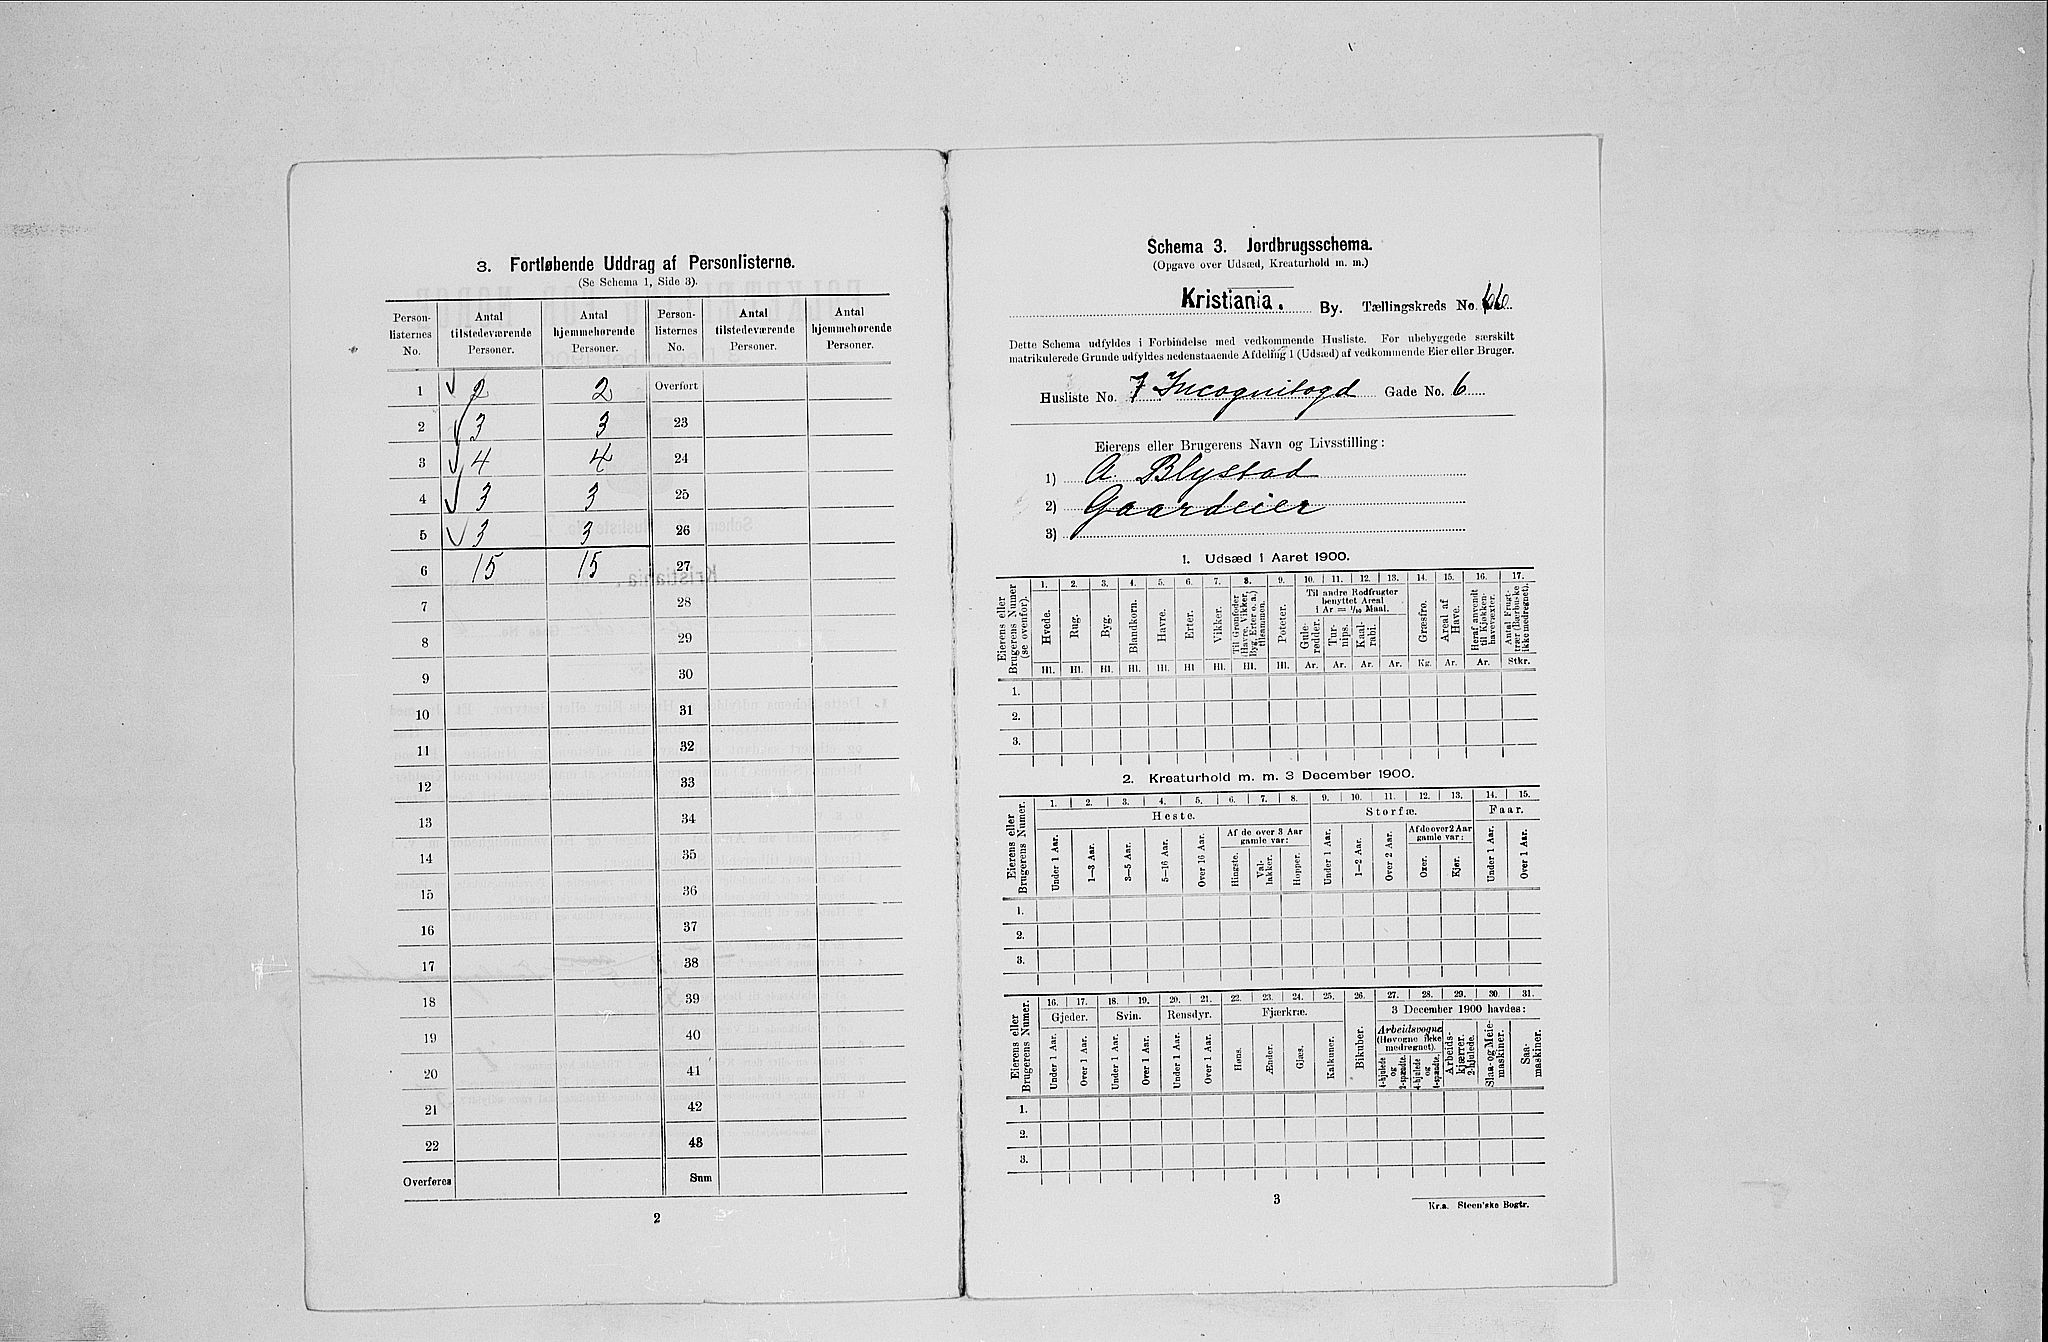 3. Fortløbende Uddrag af Personlisterne.
(Se Schema 1, Side 3).
Person-listernes No. | Antal tilstedeværende Personer. | Antal hjemmehørende Personer. | Person-listernes No. | Antal tilstedeværende Personer. | Antal hjemmehørende Personer.
1 2 2 Overført
2 3 3 23
3 4 4 24
4 3 3 25
5 3 3 26
6 15 15 27
7 28
8 29
9 30
10 31
11 32
12 33
13 34
14 35
15 36
16 37
17 38
18 39
19 40
20 41
21 42
22 43
Overføres Sum
2
Schema 3. Jordbrugsschema.
(Opgave over Udsæd, Kreaturhold m. m.)
Kristiania. By. Tællingskreds No. 66.
Dette Schema udfyldes i Forbindelse med vedkommende Husliste. For ubebyggede særskilt
matrikulerede Grunde udfyldes nedenstaaende Afdeling 1 (Udsæd) af vedkommende Eier eller Bruger.
Husliste No. 7 Incognitogd Gade No. 6
Eierens eller Brugerens Navn og Livsstilling:
1) A Blystad
2) Gaardeier
3)
1. Udsæd i Aaret 1900.
Eierens eller Brugerens Numer (se ovenfor).
1. 2. 3. 4. 5. 6. 7. 8. 9. 10. 11. 12. 13. 14. 15. 16. 17.
Til andre Rodfrugter benyttet Areal i Ar = 1/10 Maal.
Hvede. Rug. Byg. Blandkorn. Havre. Erter. Vikker. Til Grønfoder (Havre, Vikker, Byg, Erter o. a.) tilsammen. Poteter. Gule-rødder. Tur-nips. Kaal-rabi. Græsfrø. Areal af Have. Heraf anvendt til Kjøkken-havevæxter. Antal Frugt-trær (Bærbuske ikke medregnet).
Hl. Hl. Hl. Hl. Hl. Hl Hl. Hl. Hl. Ar. Ar. Ar. Ar. Kg. Ar. Ar. Stkr.
1.
2.
3.
2. Kreaturhold m. m. 3 December 1900.
Eierens eller Brugerens Numer.
1. 2. 3. 4. 5. 6. 7. 8. 9. 10. 11. 12. 13. 14. 15.
Heste. Storfæ. Faar.
Af de over 3 Aar gamle var: Af de over 2 Aar gamle var:
Under 1 Aar. 1–3 Aar. 3–5 Aar. 5–16 Aar. Over 16 Aar. Hingste. Val-lakker. Hopper. Under 1 Aar. 1–2 Aar. Over 2 Aar. Oxer. Kjør. Under 1 Aar. Over 1 Aar.
1.
2.
3.
Eierens eller Brugerens Numer.
16. 17. 18. 19. 20. 21. 22. 23. 24. 25. 26. 27. 28. 29. 30. 31.
Gjeder. Svin. Rensdyr. Fjærkræ. 3 December 1900 havdes:
Arbeidsvogne (Høvogne ikke medregnet).
Under 1 Aar. Over 1 Aar. Under 1 Aar. Over 1 Aar. Under 1 Aar. Over 1 Aar. Høns. Ænder. Gjæs. Kalkuner. Bikuber. 4-hjulede og 2-spændte. 4-hjulede og 1-spændte. Arbeids-kjærrer, 2-hjulede. Slaa- og Meie-maskiner. Saa-maskiner.
1.
2.
3.
3
Kr.a. Steen'ske Bogtr.